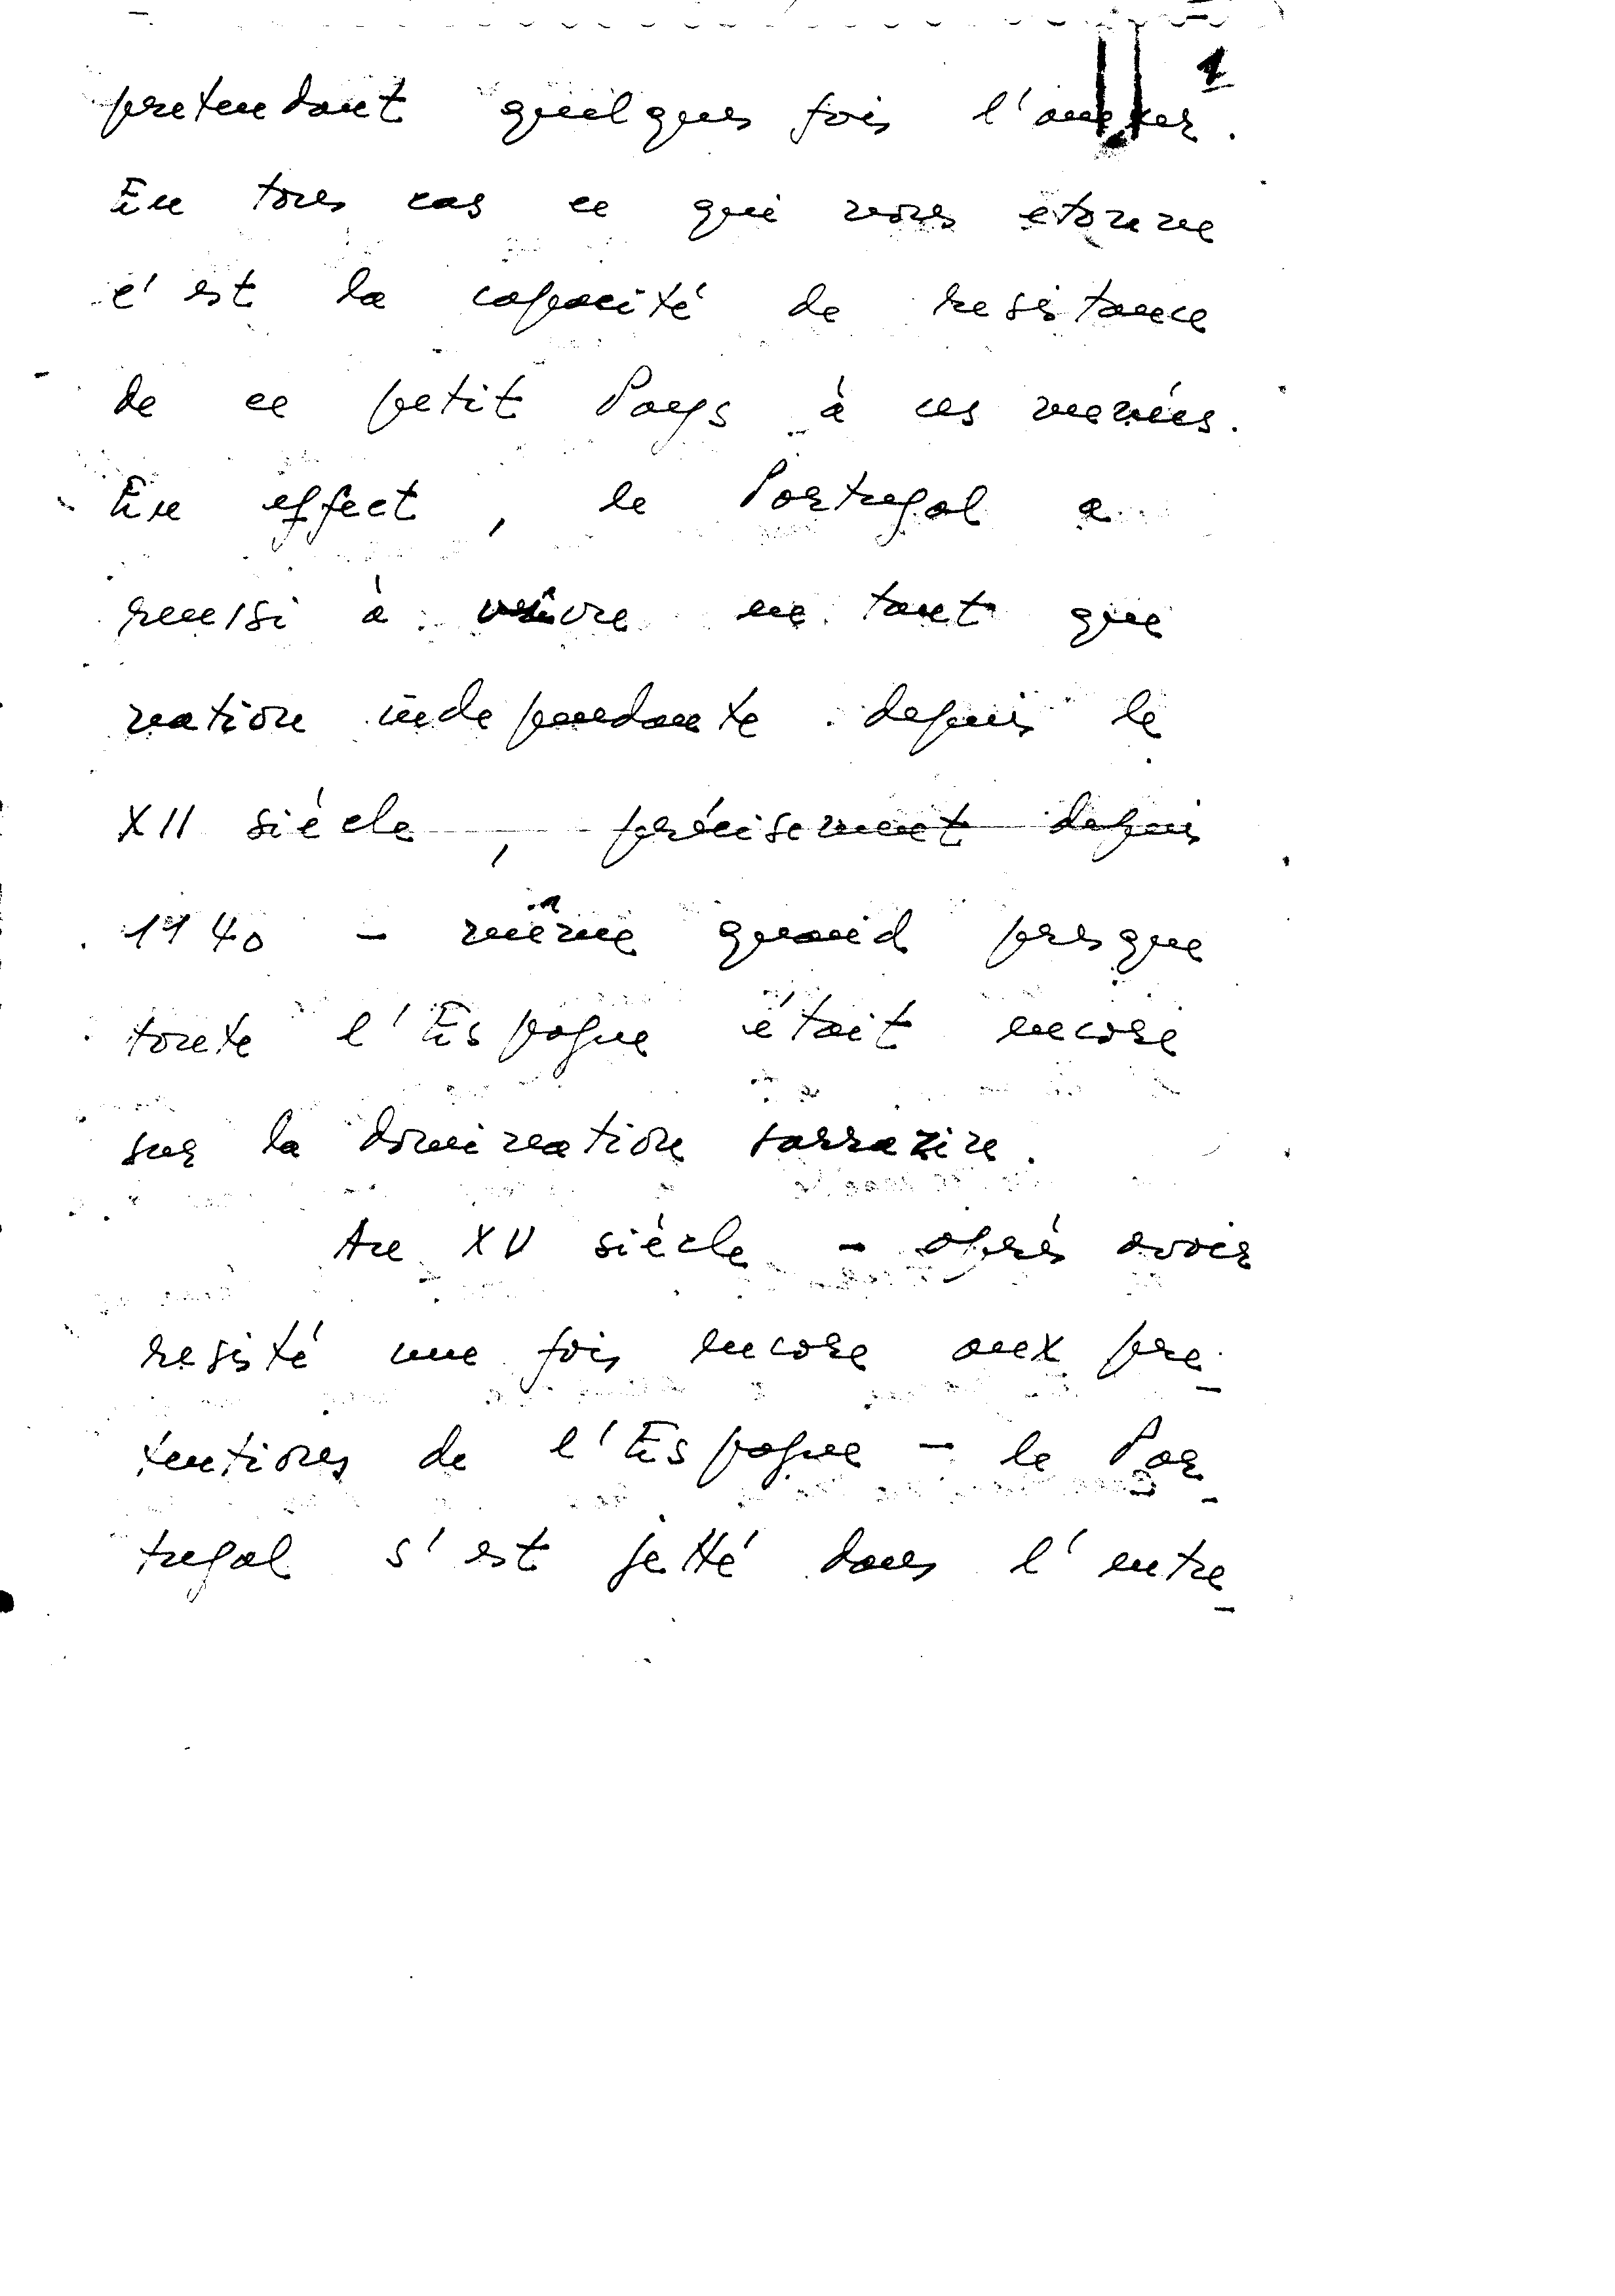 1
pretendant quelques fois l'anexer.
En tous cas ce qui nous etonne
c'est la capacité de resistance
de ce petit Pays à ces menées.
En effect, le Portugal a
reussi à vivre en tant que
nation independante depuis le
XII siécle, précisement depuis
1140 - même quand presque
toute l'Espagne était encore
sur la domination sarrazine.
Au XV siécle - aprés avoir
resisté une fois encore aux pre-
tentions de l'Espagne - le Por-
tugal s'est jetté dans l'entre-